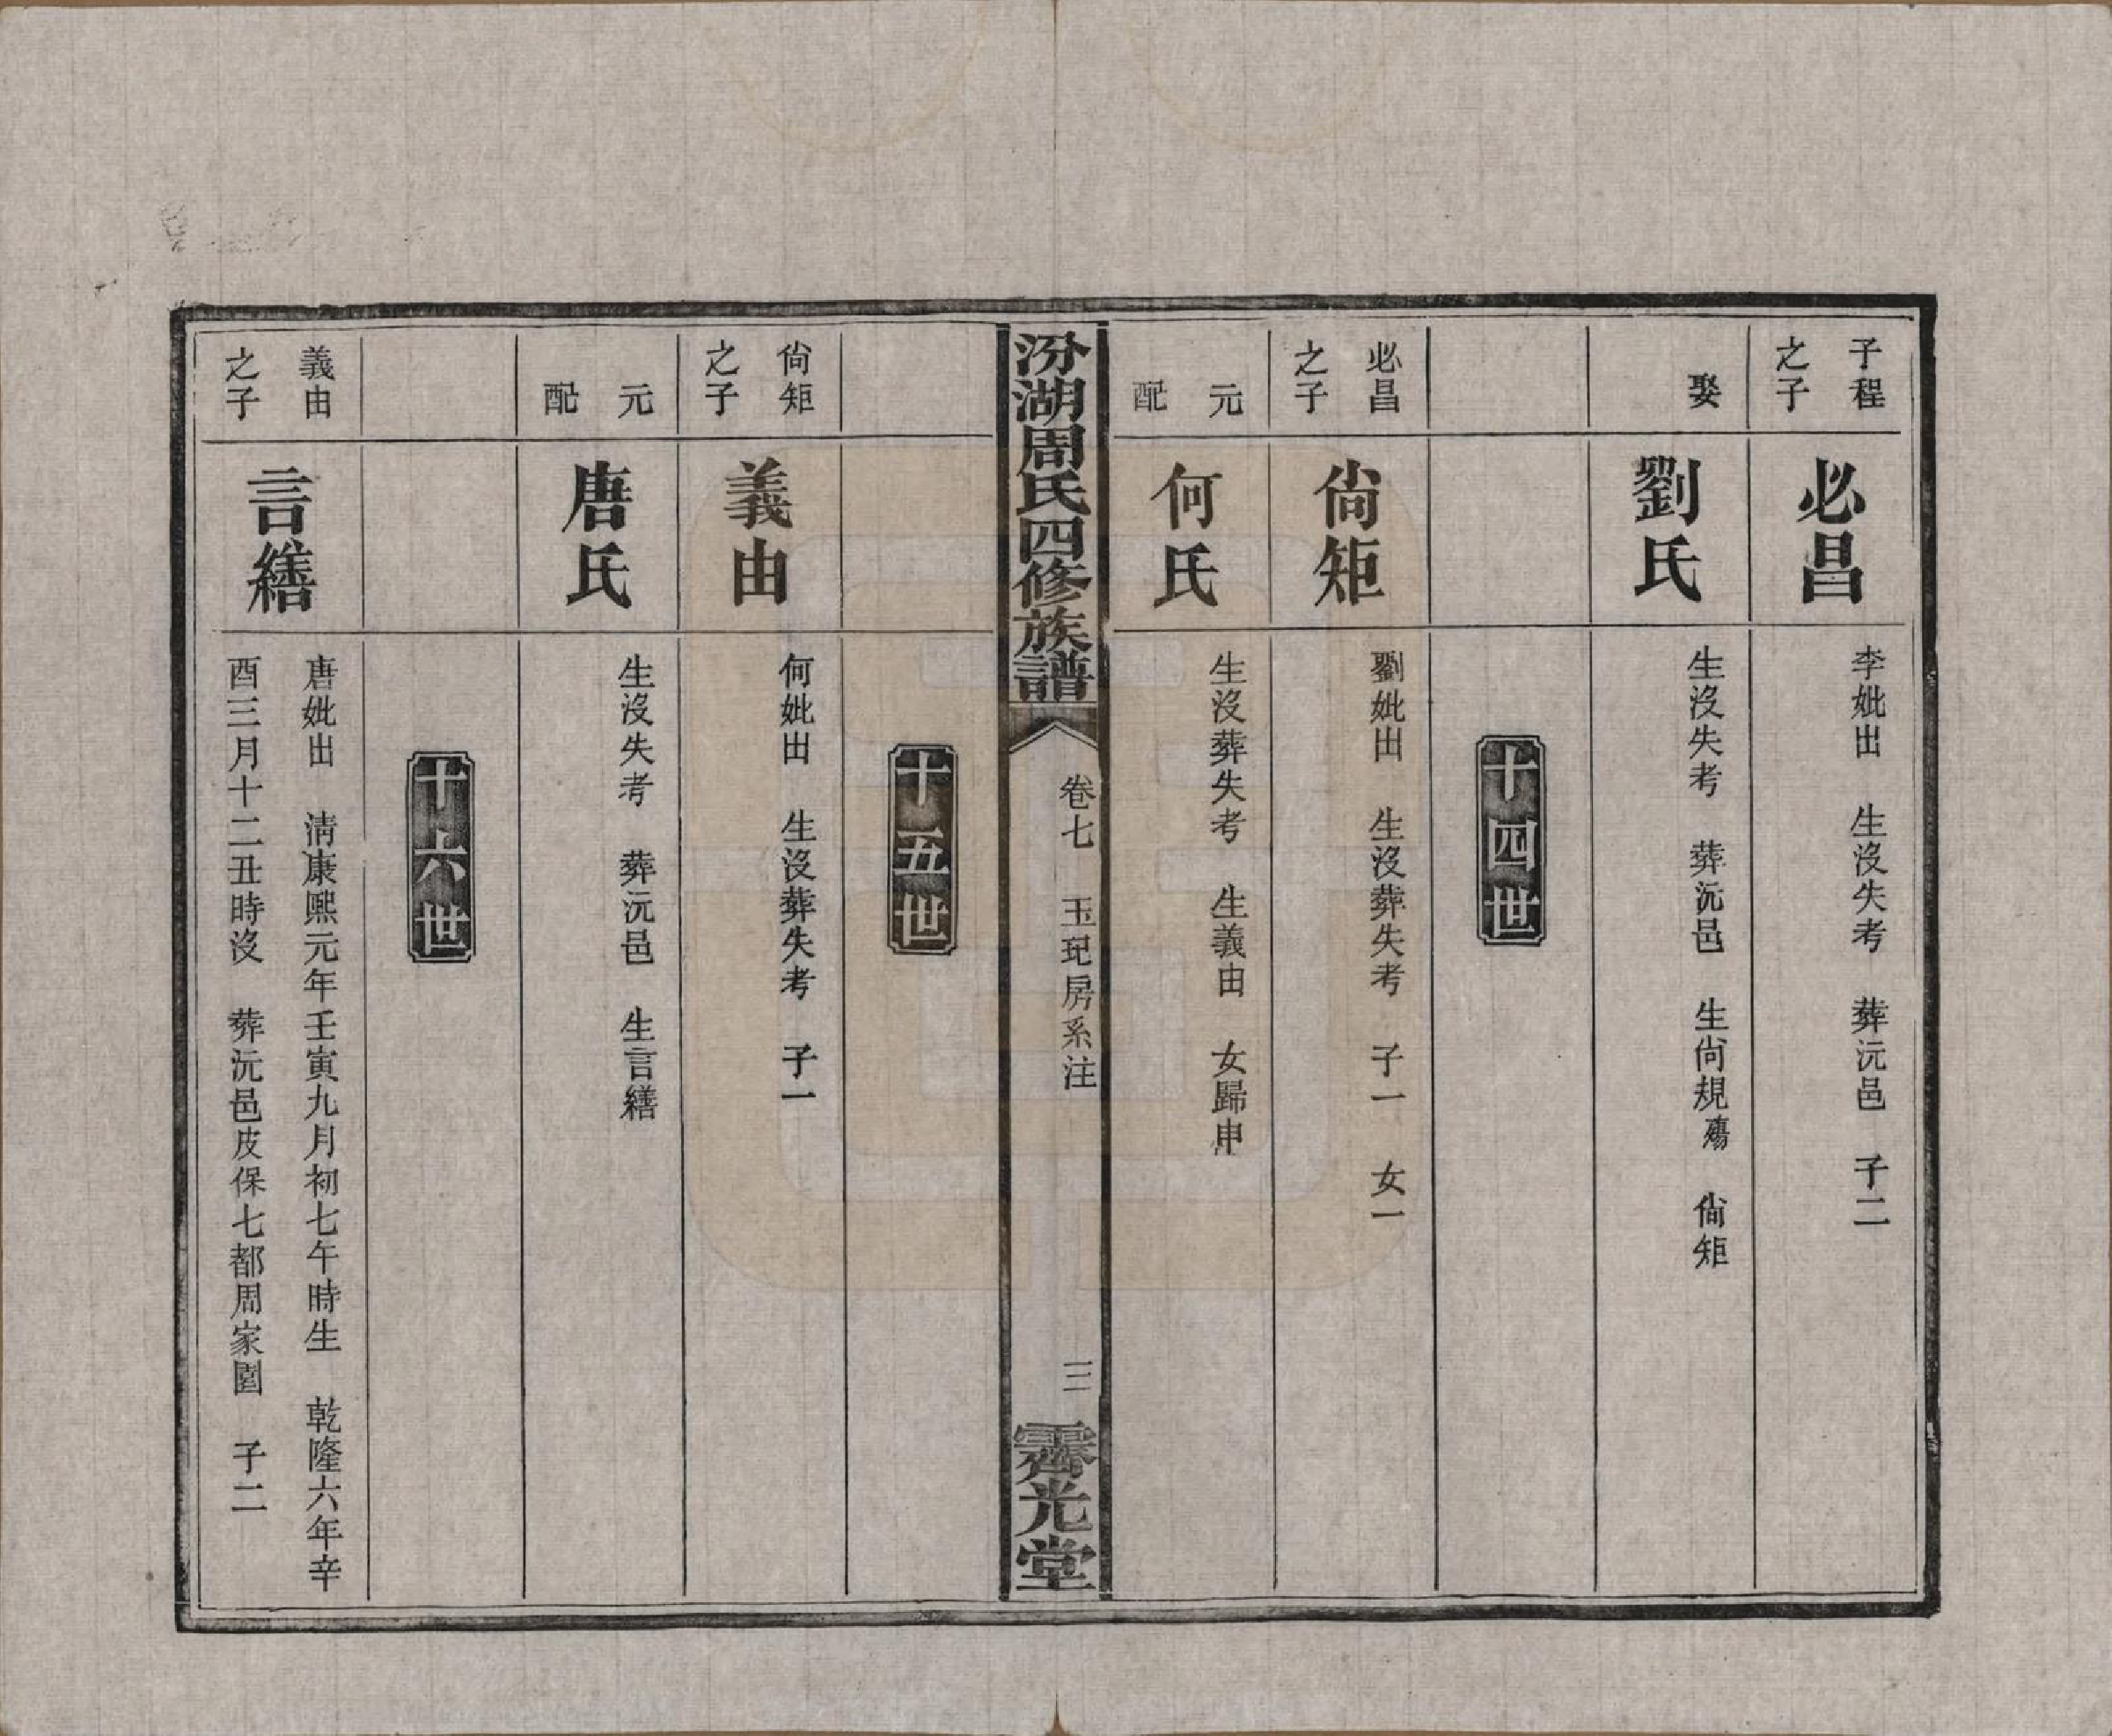 子程
之子
必昌
李妣出　生沒失考　葬沅邑　子二
娶
劉氏
生沒失考　葬沅邑　生尙規殤　尙矩
十四世
必昌
之子
尙矩
劉妣出　生沒葬失考　子一　女一
元
配
何氏
生沒葬失考　生義由　女歸申
汾湖周氏四修族譜
卷七　玉玘房系注
三
霽光堂
十五世
尙矩
之子
義由
何妣出　生沒葬失考　子一
元
配
唐氏
生沒失考　葬沅邑　生言繕
十六世
義由
之子
言繕
唐妣出　淸康熙元年壬寅九月初七午時生　乾隆六年辛
酉三月十二丑時沒　葬沅邑皮保七都周家園　子二